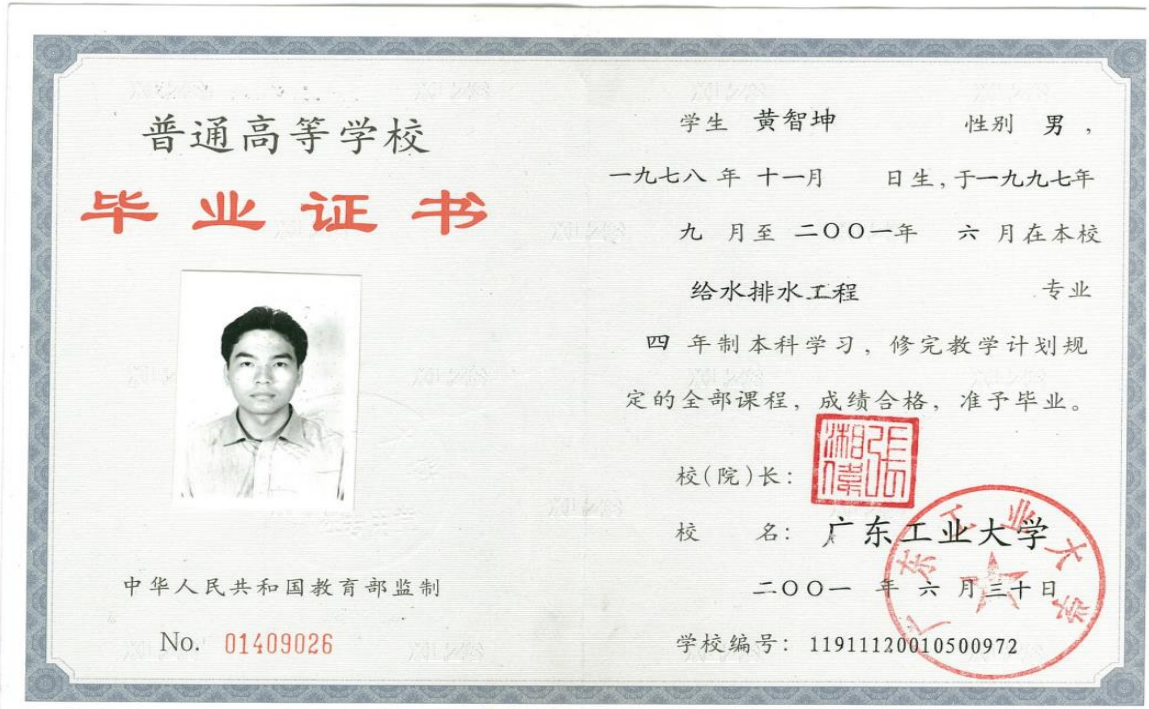 普通高等学校
毕业证书
中华人民共和国教育部监制
No. 01409026
学生 黄智坤 性别 男，
一九七八 年 十一月 日生，于一九九七年
九 月至 二〇〇一年 六 月在本校
给水排水工程 专业
四 年制本科学习，修完教学计划规
定的全部课程，成绩合格，准予毕业。
校(院)长：
张湘伟
校 名： 广东工业大学
广东工业大学
二〇〇一 年 六 月三十日
学校编号： 11911120010500972